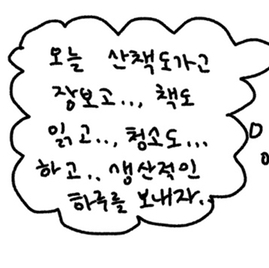 오늘 산책도가고
장보고.., 책도
읽고.., 청소도...
하고.. 생산적인
하루를 보내자.